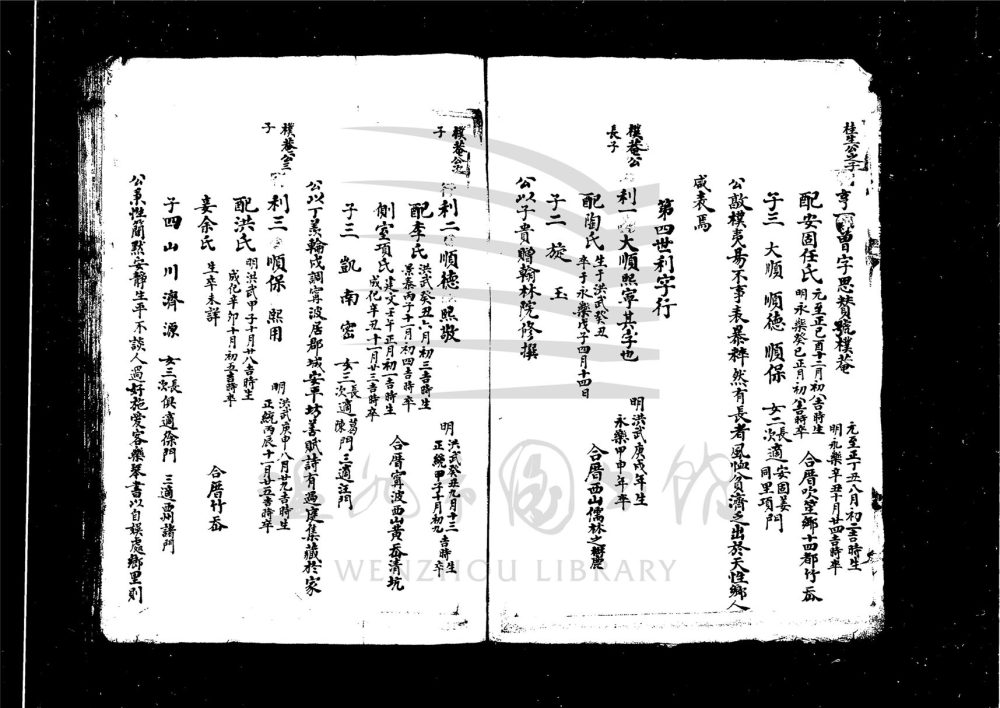 桂生公之子
亨一 曾字思贊號樸菴 元至正丁丑八月初二吉時生
明永樂辛丑十月廿四吉時卒
配安固任氏 元至正己酉十二月初八吉時生
明永樂癸巳正月初八吉時卒 合厝吹臺鄉十四都竹岙
子三 大順 順德 順保 女二 長適安固姜
次適同里項門
公敦樸夷易不事表暴粹然有長者風恤貧濟乏出於天性鄉人
咸表焉
第四世利字行
樸菴公
長子
利一 大順熙寧其字也 明洪武庚戌年生
永樂甲申年卒
配陶氏 生于洪武癸丑
卒于永樂戊子四月十四日 合厝西山儒林之
子二 旋 玉
公以子貴贈翰林院修撰
樸菴公之
子
利二 順德 熙敬 明洪武癸丑九月十三吉時生
正統甲子十月初九吉時卒
配李氏 洪武癸丑六月初三吉時生
景泰丙子十一月初四吉時卒 合厝寧波西山黃岙清坑
側室項氏 建文壬午正月初一吉時生
成化辛丑十一月廿三吉時卒
子三 凱 南 密 女三 長適葛
次適陳門三適汪門
公以丁差輪戍調寧波居郡城安平坊善賦詩有過庭集藏於家
樸菴公三
子
利三 順保 熙用 明洪武庚申八月廿九吉時生
正統丙辰十一月廿五吉時卒
配洪氏 明洪武甲子十月廿八吉時生
成化辛卯十月初五吉時卒
妾余氏 生卒未詳 合厝竹岙
子四 山 川 濟 源 女三 長
次俱適徐門 三適西州諸門
公美性簡默安靜生平不談人過好施愛客樂琴書以自娛處鄉里則
WENZHOU LIBRARY